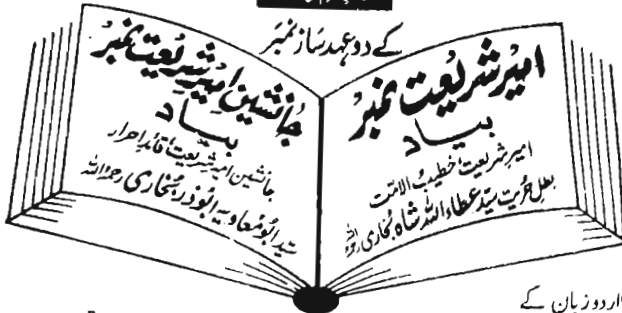 کے دو عہد ساز نمبر
امیر شریعت نمبر
بیاد
امیر شریعت، خطیب الامت
بطل حریت سید عطاء اللہ شاہ بخاری رحمہ اللہ
جانشین امیر شریعت نمبر
بیاد
جانشین امیر شریعت، قائد احرار
سید ابو معاویہ ابوذر بخاری رحمہ اللہ
اردو زبان کے